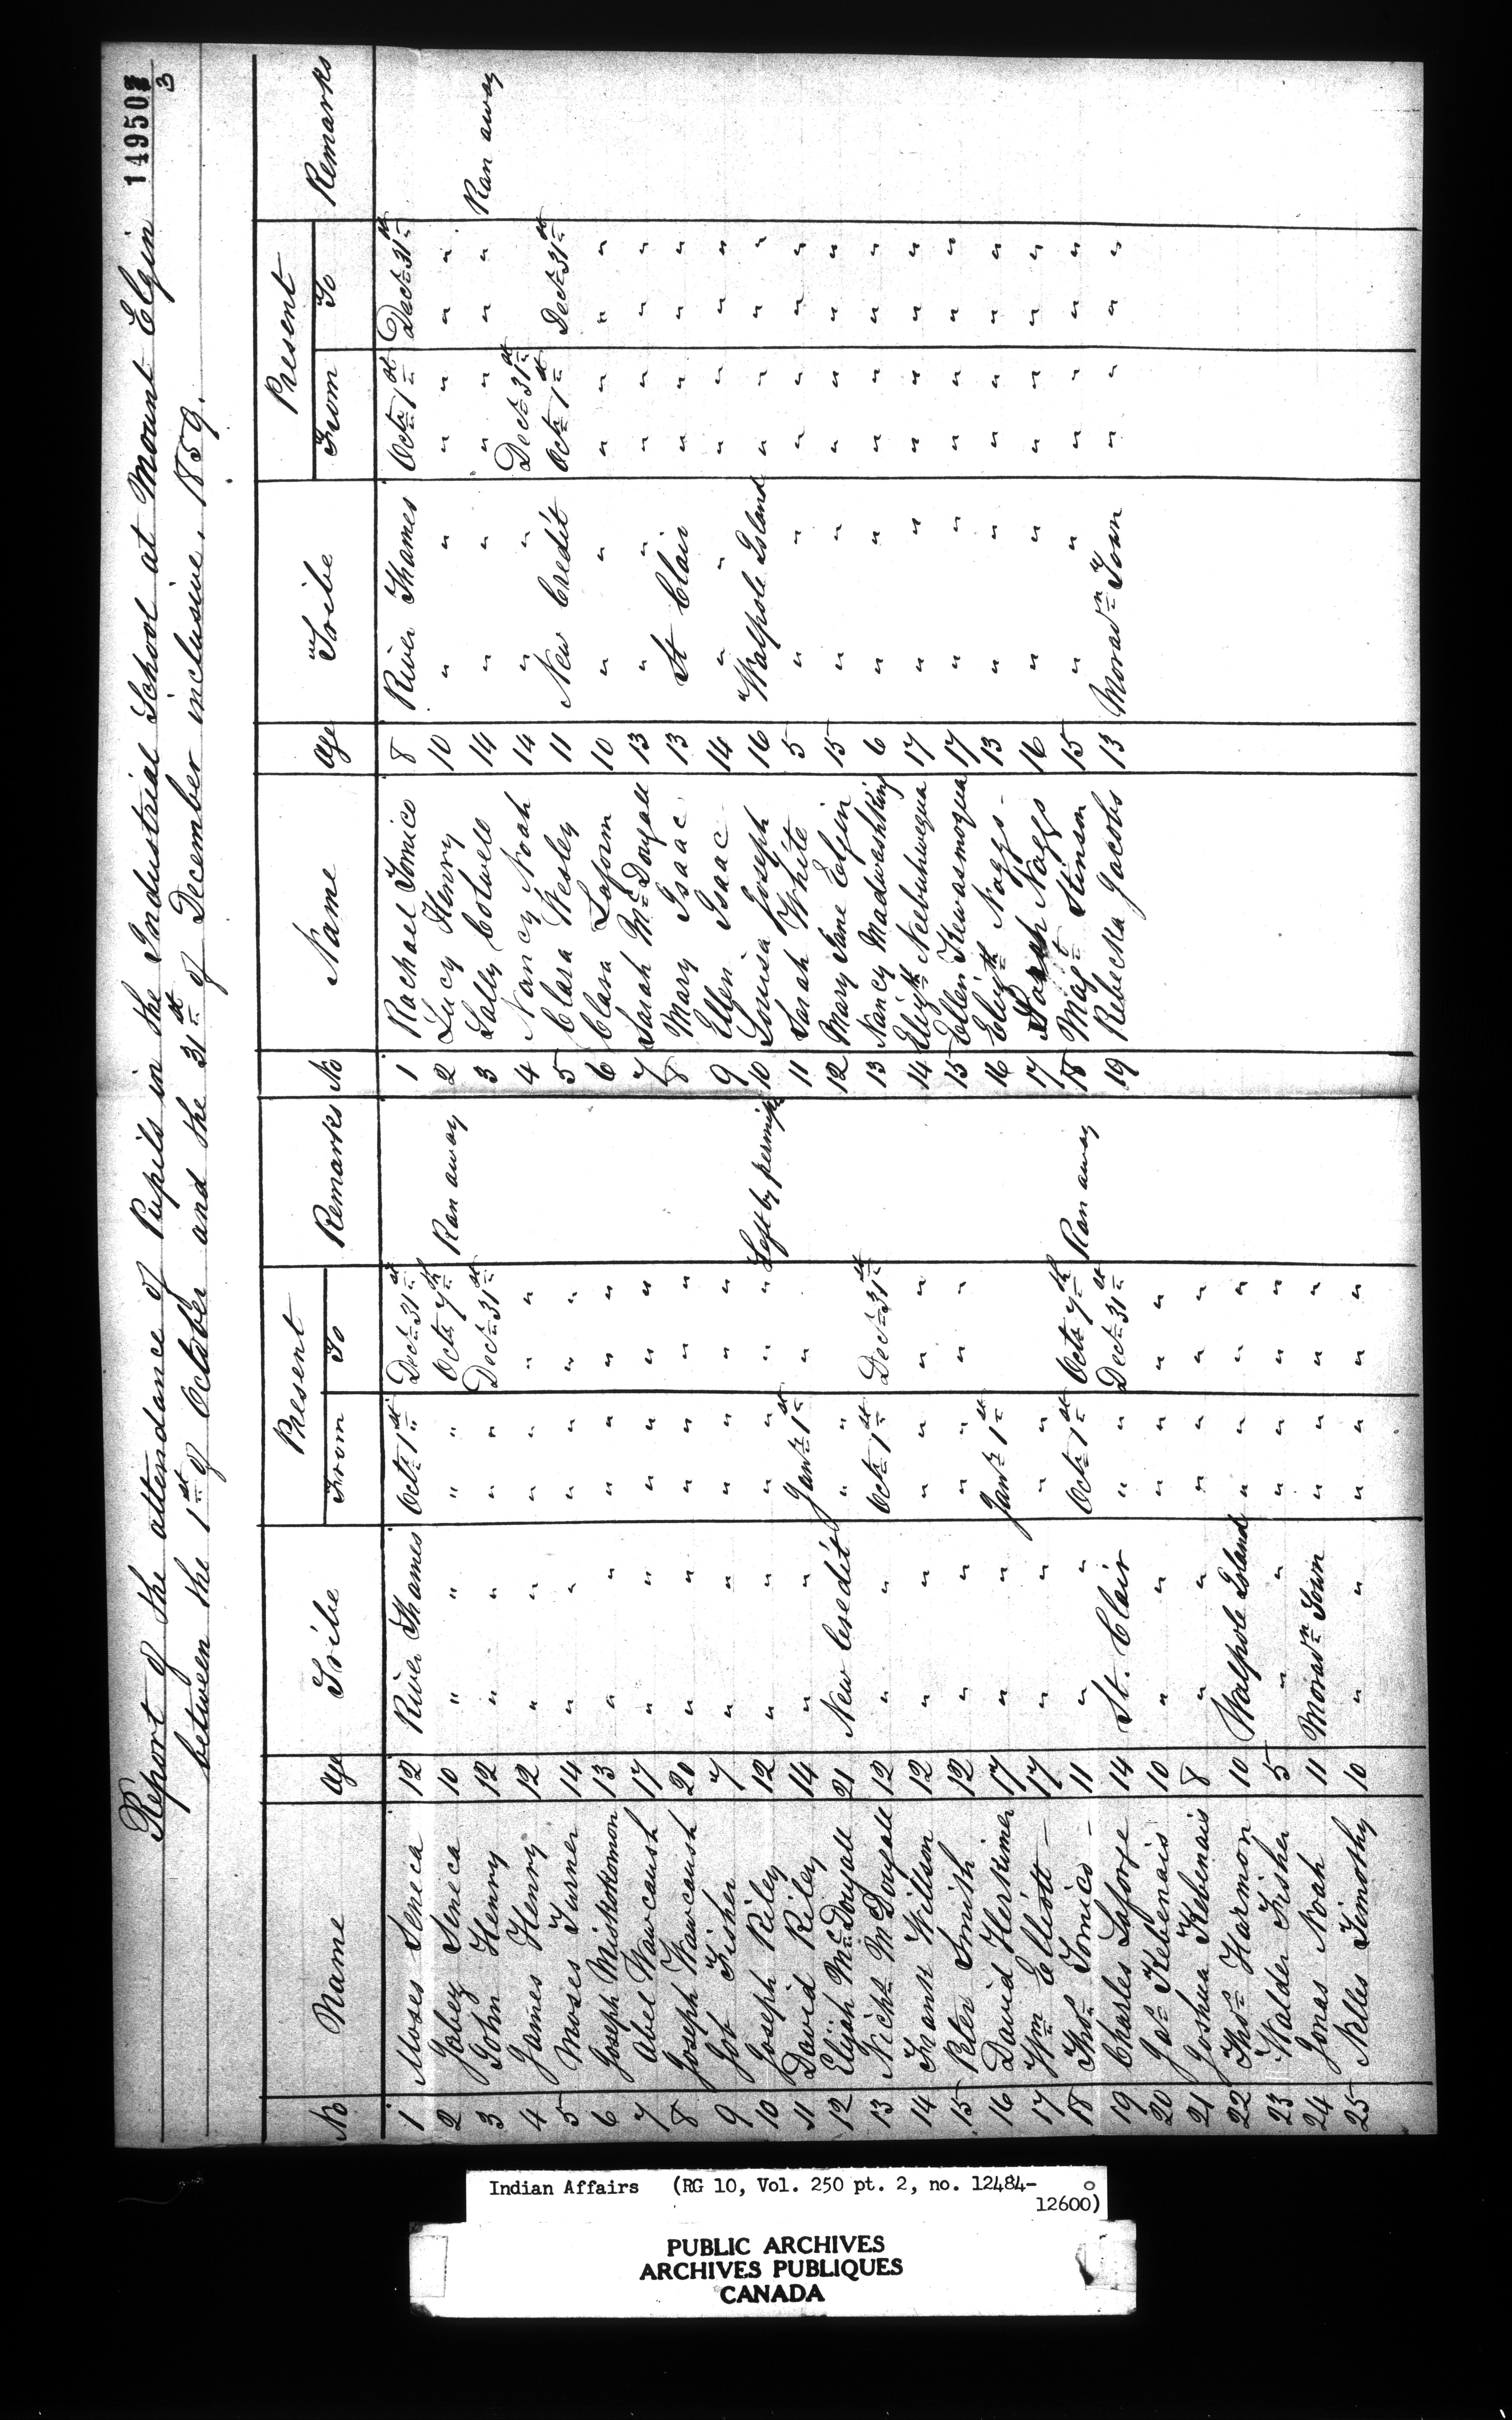 149503
3
Report of the attendance of Pupils in the Industrial School at Mount Elgin
between the 1st of October and the 31st of December inclusive. 1859.
No Name Age Tribe Present From To Remarks
1 Moses Seneca 12 River Thames Octr 1st Decr 31st
2 Jabez Seneca 10 " " " " Octr 7th Ran away
3 John Henry 12 " " " " Decr 31st
4 James Henry 12 " " " " " "
5 Moses Turner 14 " " " " " "
6 Joseph Miskokomon 13 " " " " " "
7 Abel Wawcaush 17 " " " " " "
8 Joseph Wawcaush 20 " " " " " "
9 Job Fisher 7 " " " " " "
10 Joseph Riley 12 " " " " " " Left by permisn
11 David Riley 14 " " Jany 1st " "
12 Elijah McDougall 21 New Credit " "
13 Nichs McDougall 12 " " Octr 1st Decr 31st
14 Frank Willson 12 " " " " " "
15 Peter Smith 12 " " " " " "
16 David Herkimer 17 " " Jany 1st
17 Wm Elliott - 17 " " " "
18 Thos Tomico - 11 " " Octr 1st Octr 7th Ran away
19 Charles Laforge 14 St. Clair " " Decr 31st
20 Jas Kebenais 10 " " " " " "
21 Joshua Kebenais 8 " " " " " "
22 Thos Harmon 10 Walpole Island " " " "
23 Walder Fisher 5 " " " " " "
24 Jonas Noah 11 Moravn Town " " " "
25 Nelles Timothy 10 " " " " " "
No Name Age Tribe Present From To Remarks
1 Rachael Tomico 8 River Thames Octr 1st Decr 31st
2 Lucy Henry 10 " " " " " "
3 Sally Colwell 14 " " " " " " Ran away
4 Nancy Noah 14 " " Decr 31st
5 Clara Wesley 11 New Credit Octr 1st Decr 31st
6 Clara Laform 10 " " " " " "
7 Sarah McDougall 13 " " " " " "
8 Mary Isaac 13 St Clair " " " "
9 Ellen Isaac 14 " " " " " "
10 Louisa Joseph 16 Walpole Island " " " "
11 Sarah White 5 " " " " " "
12 Mary Jane Elgin 15 " " " " " "
13 Nancy Madwashking 6 " " " " " "
14 Elizth Neebuhwequa 17 " " " " " "
15 Ellen Kewasmoqua 17 " " " " " "
16 Elizth Naggs - 13 " " " " " "
17 Sarah Naggs 16 " " " " " "
18 Magt Stinson 15 " " " " " "
19 Rebecka Jacobs 13 Moravn Town " " " "
Indian Affairs (RG 10, Vol. 250 pt. 2, no. 12484-
12600)
PUBLIC ARCHIVES
ARCHIVES PUBLIQUES
CANADA